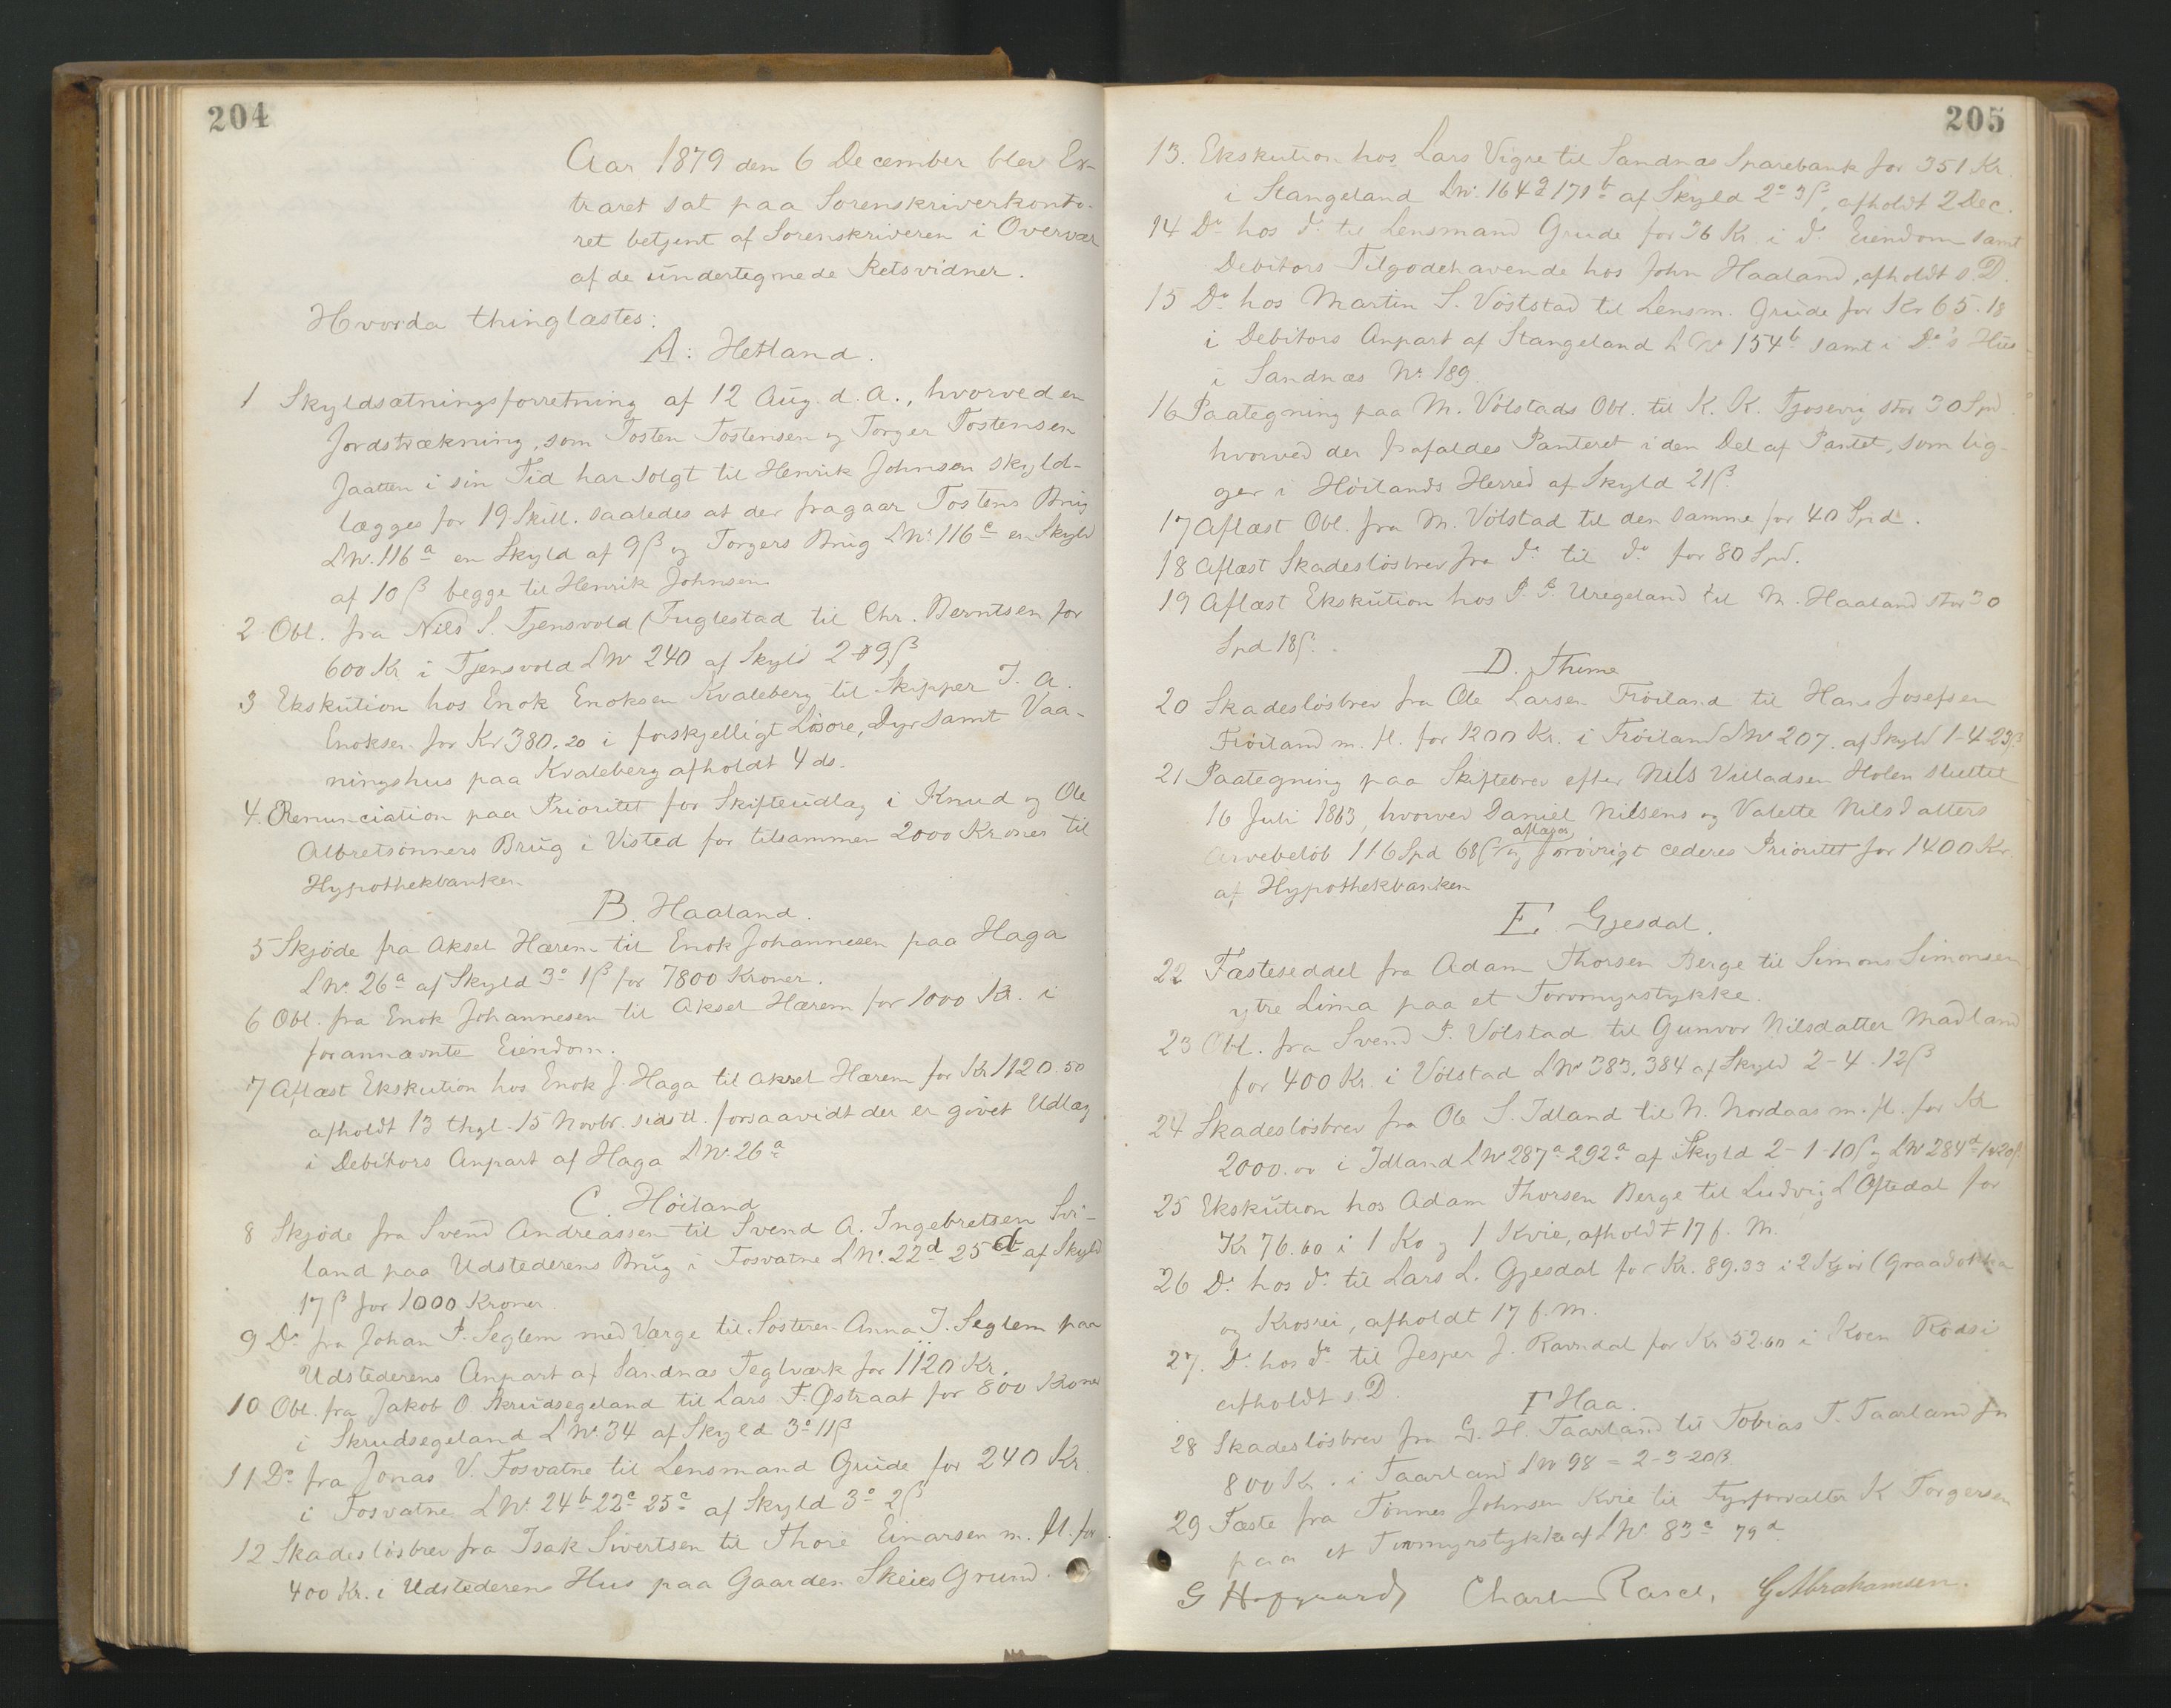 204
Aar 1879 den 6 December blev Ex-
traret sat paa Sorenskriverkonto-
ret betjent af Sorenskriveren i Overvær
af de undertegnede Retsvidner.
Hvorda thinglæstes:
A: Hetland.
1 Skyldsætningsforretning af 12 Aug. d. A., hvorved en
Jordstrækning, som Tosten Tostensen og Torger Tostensen
Jaatten i sin Tid har solgt til Henrik Johnsen skyld-
lægges for 19 Skill. saaledes at der fragaar Tostens Brug
LNr. 116a en Skyld af 9 ß og Torgers Brug LNr. 116c en Skyld
af 10 ß begge til Henrik Johnsen
2 Obl. fra Nils S. Tjensvold (Fuglestad til Chr. Berntsen for
600 Kr. i Tjensvold LNr 240 af Skyld 2 - 9 ß
3 Ekskution hos Enok Enoksen Kvaleberg til Skipper T. A.
Enoksen for Kr 380.20 i forskjelligt Løsøre, Dyr samt Vaa-
ningshus paa Kvaleberg afholdt 4 ds.
4. Renunciation paa Prioritet for Skifteudlæg i Knud og Ole
Albretsønners Brug i Visted for tilsammen 2000 Kroner til
Hypothekbanken
B. Haaland.
5 Skjøde fra Aksel Hærem til Enok Johannesen paa Haga
LNr. 26a af Skyld 3o 1 ß for 7800 Kroner.
6 Obl. fra Enok Johannesen til Aksel Hærem for 1000 Kr. i
forannævnte Eiendom.
7 Aflæst Ekskution hos Enok J. Haga til Aksel Hærem for Kr 1120.50
afholdt 13 thgl. 15 Novbr. sidstl. forsaavidt der er givet Udlæg
i Debitors Anpart af Haga LNr. 26a
C. Høiland
8 Skjøde fra Svend Andreassen til Svend A. Ingebretsen Svi-
land paa Udstederens Brug i Fosvatne LNr. 22d 25d af Skyld
17 ß for 1000 Kroner
9 Do fra Johan P. Seglem med Værge til Søsteren Anna J. Seglem paa
Udstederens Anpart af Sandnæs Teglværk for 1120 Kr.
10 Obl. fra Jakob O. Skrudsegeland til Lars T. Østraat for 800 Kroner
i Skrudsegeland LNr 34 af Skyld 3o 11 ß
11 Do fra Jonas V. Fosvatne til Lensmand Grude for 240 Kr
i Fosvatne LNr. 24b 22c 25c af Skyld 3o 2 ß
12 Skadesløsbrev fra Isak Sivertsen til Thore Einarsen m. fl. for
400 Kr. i Udstederens Hus paa Gaarden Skeies Grund.
205
13. Ekskution hos Lars Vigre til Sandnæs Sparebank for 351 Kr.
i Stangeland LNr. 164d 171b af Skyld 2o 3 ß, afholdt 2 Dec.
14 Do hos do til Lensmand Grude for 36 Kr. i do Eiendom samt
Debitors Tilgodehavende hos John Haaland, afholdt s. D.
15 Do hos Martin S. Vølstad til Lensm. Grude for Kr 65.18
i Debitors Anpart af Stangeland LNr 154b samt i Do's Hus
i Sandnæs Nr. 189
16 Paategning paa M. Vølstads Obl. til K. K. Tjosevig stor 30 Spd
hvorved der frafaldes Panteret i den Del af Pantet, som lig-
ger i Høilands Herred af Skyld 21 ß.
17 Aflæst Obl. fra M. Vølstad til den samme for 40 Spd.
18 Aflæst Skadesløsbrev fra do til do for 80 Spd.
19 Aflæst Ekskution hos P. P. Uregeland til M. Haaland stor 30
Spd 18 ß.
D. Thime
20 Skadesløsbrev fra Ole Larsen Frøiland til Hans Josefsen
Frøiland m. fl. for 1200 Kr. i Frøiland LNr 207. af Skyld 1-4-23 ß
21 Paategning paa Skiftebrev efter Nils Villadsen Holen sluttet
16 Juli 1863, hvorved Daniel Nilsens og Valette Nilsdatters
Arvebeløb 116 Spd 68 ß aflæses og forøvrigt cederes Prioritet for 1400 Kr.
af Hypothekbanken
E. Gjesdal.
22 Fæsteseddel fra Adam Thorsen Berge til Simons Simonsen
ytre Lima paa et Torvmyrstykke.
23 Obl. fra Svend P. Vølstad til Gunvor Nilsdatter Madland
for 400 Kr. i Vølstad LNr 383. 384 af Skyld 2-4. 12 ß
24 Skadesløsbrev fra Ole S. Idland til N. Nordaas m. fl. for Kr
2000.00 i Idland LNr 287a 292a af Skyld 2-1-10 ß og LNr 284d
25 Ekskution hos Adam Thorsen Berge til Ludvig L Oftedal for
Kr 76.60 i 1 Ko og 1 Kvie, afholdt 17 f. M.
26 Do hos do til Lars L. Gjesdal for Kr. 89.33 i 2 Kjør
og Krosrei, afholdt 17 f. M.
27. Do hos do til Jesper J. Ravndal for Kr 52.60 i Koen Rødsi
afholdt s. D.
F Haa.
28 Skadesløsbrev fra G. H. Taarland til Tobias T. Taarland for
800 Kr. i Taarland LNr 98 = 2-3-20 ß
29 Fæste fra Tønnes Johnsen Kvie til Fyrforvalter K Torgersen
paa et Torvmyrstykke af LNr. 83c 79d
G Hofgaard Charl Rasch, G Abrahamsen.